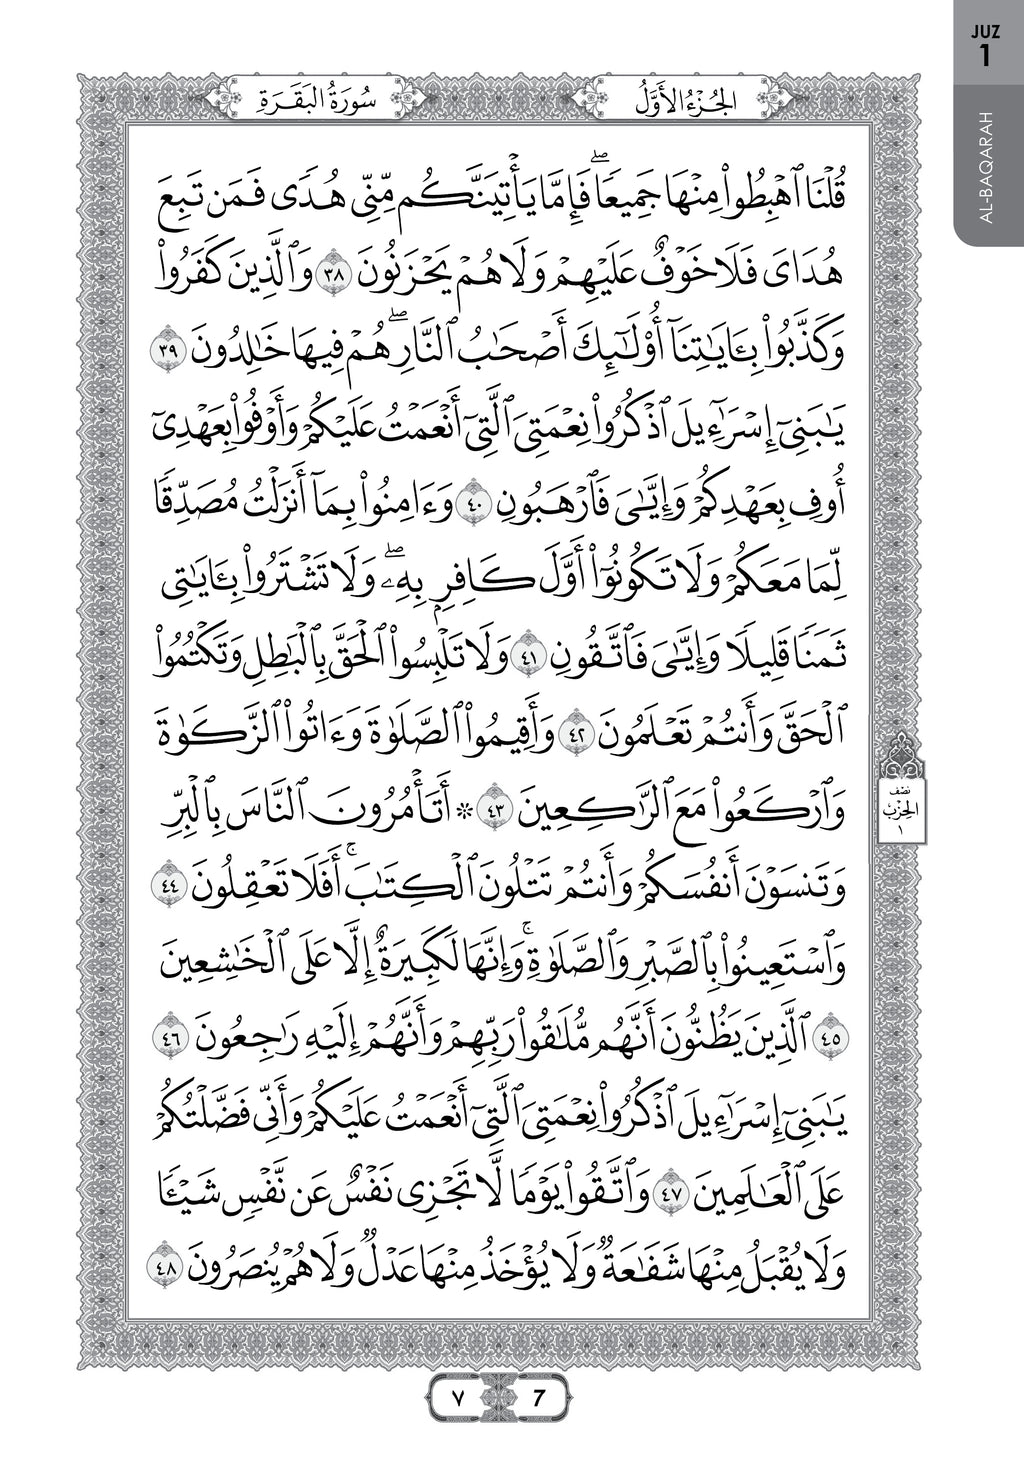 JUZ
1
AL-BAQARAH
الجُزْءُ الأَوَّلُ
سُورَةُ البَقَرَةِ
قُلْنَا ٱهْبِطُوا۟ مِنْهَا جَمِيعًا ۖ فَإِمَّا يَأْتِيَنَّكُم مِّنِّى هُدًى فَمَن تَبِعَ
هُدَاىَ فَلَا خَوْفٌ عَلَيْهِمْ وَلَا هُمْ يَحْزَنُونَ ٣٨ وَٱلَّذِينَ كَفَرُوا۟
وَكَذَّبُوا۟ بِـَٔايَـٰتِنَآ أُو۟لَـٰٓئِكَ أَصْحَـٰبُ ٱلنَّارِ ۖ هُمْ فِيهَا خَـٰلِدُونَ ٣٩
يَـٰبَنِىٓ إِسْرَٰٓءِيلَ ٱذْكُرُوا۟ نِعْمَتِىَ ٱلَّتِىٓ أَنْعَمْتُ عَلَيْكُمْ وَأَوْفُوا۟ بِعَهْدِىٓ
أُوفِ بِعَهْدِكُمْ وَإِيَّـٰىَ فَٱرْهَبُونِ ٤٠ وَءَامِنُوا۟ بِمَآ أَنزَلْتُ مُصَدِّقًا
لِّمَا مَعَكُمْ وَلَا تَكُونُوٓا۟ أَوَّلَ كَافِرٍۭ بِهِۦ ۖ وَلَا تَشْتَرُوا۟ بِـَٔايَـٰتِى
ثَمَنًا قَلِيلًا وَإِيَّـٰىَ فَٱتَّقُونِ ٤١ وَلَا تَلْبِسُوا۟ ٱلْحَقَّ بِٱلْبَـٰطِلِ وَتَكْتُمُوا۟
ٱلْحَقَّ وَأَنتُمْ تَعْلَمُونَ ٤٢ وَأَقِيمُوا۟ ٱلصَّلَوٰةَ وَءَاتُوا۟ ٱلزَّكَوٰةَ
وَٱرْكَعُوا۟ مَعَ ٱلرَّٰكِعِينَ ٤٣ * أَتَأْمُرُونَ ٱلنَّاسَ بِٱلْبِرِّ
نصف
الحزب
١
وَتَنسَوْنَ أَنفُسَكُمْ وَأَنتُمْ تَتْلُونَ ٱلْكِتَـٰبَ ۚ أَفَلَا تَعْقِلُونَ ٤٤
وَٱسْتَعِينُوا۟ بِٱلصَّبْرِ وَٱلصَّلَوٰةِ ۚ وَإِنَّهَا لَكَبِيرَةٌ إِلَّا عَلَى ٱلْخَـٰشِعِينَ
٤٥ ٱلَّذِينَ يَظُنُّونَ أَنَّهُم مُّلَـٰقُوا۟ رَبِّهِمْ وَأَنَّهُمْ إِلَيْهِ رَٰجِعُونَ ٤٦
يَـٰبَنِىٓ إِسْرَٰٓءِيلَ ٱذْكُرُوا۟ نِعْمَتِىَ ٱلَّتِىٓ أَنْعَمْتُ عَلَيْكُمْ وَأَنِّى فَضَّلْتُكُمْ
عَلَى ٱلْعَـٰلَمِينَ ٤٧ وَٱتَّقُوا۟ يَوْمًا لَّا تَجْزِى نَفْسٌ عَن نَّفْسٍ شَيْـًٔا
وَلَا يُقْبَلُ مِنْهَا شَفَـٰعَةٌ وَلَا يُؤْخَذُ مِنْهَا عَدْلٌ وَلَا هُمْ يُنصَرُونَ ٤٨
٧ 7